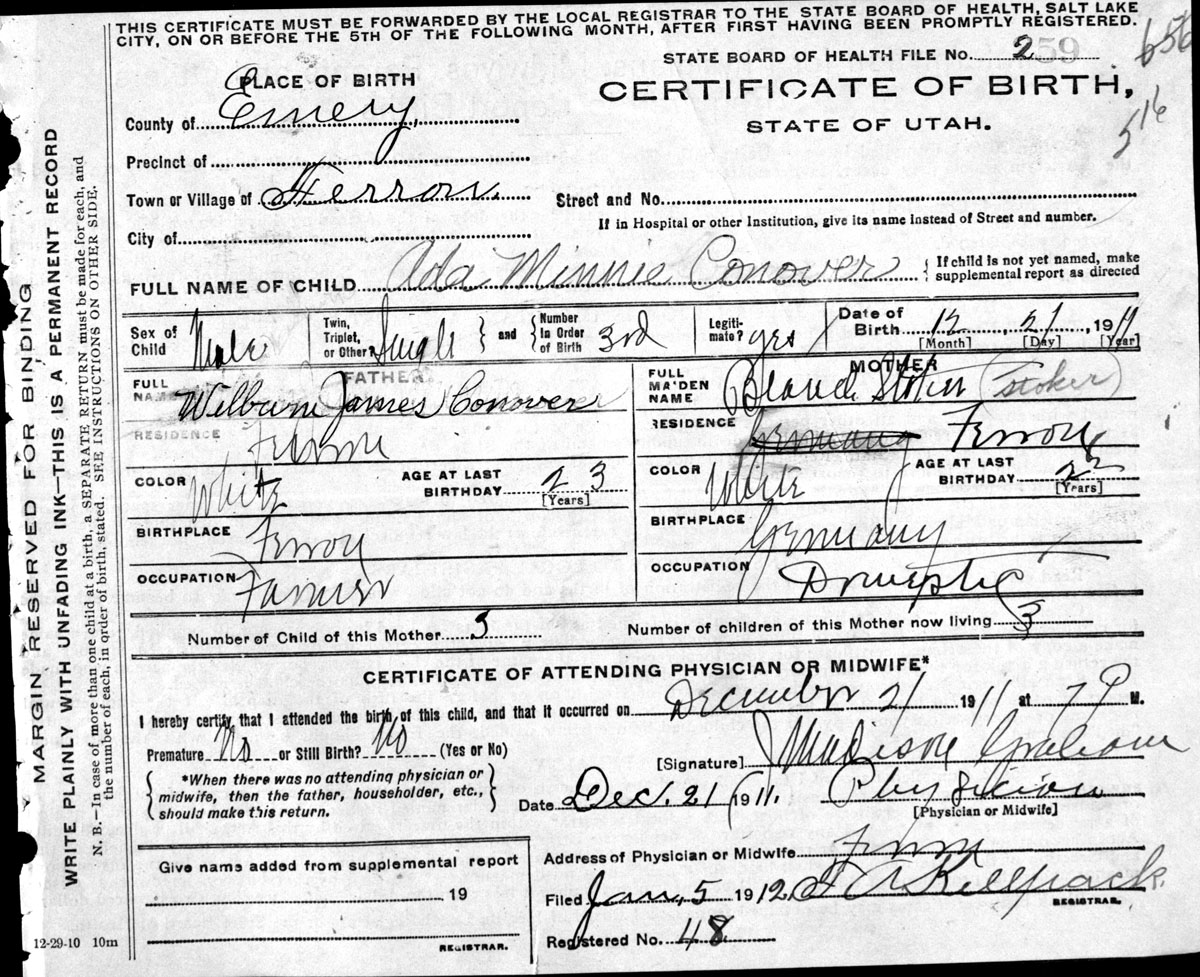 THIS CERTIFICATE MUST BE FORWARDED BY THE LOCAL REGISTRAR TO THE STATE BOARD OF HEALTH, SALT LAKE
CITY, ON OR BEFORE THE 5TH OF THE FOLLOWING MONTH, AFTER FIRST HAVING BEEN PROMPTLY REGISTERED.
656
STATE BOARD OF HEALTH FILE No. 259
PLACE OF BIRTH
CERTIFICATE OF BIRTH,
516
County of Emery,
STATE OF UTAH.
Precinct of
Town or Village of Ferron.
Street and No.
If in Hospital or other Institution, give its name instead of Street and number.
City of
FULL NAME OF CHILD Ada Minnie Conover { If child is not yet named, make supplemental report as directed
Sex of Child
Twin, Triplet, or Other? Single } and { Number In Order of Birth 3rd
Legiti-mate? yes
Date of Birth 12 21, 1911
[Month] [Day] [Year]
FATHER
MOTHER
FULL NAME Wilburn James Conover
FULL MAIDEN NAME (Stoker)
RESIDENCE Ferron
RESIDENCE Germany Ferron
COLOR White AGE AT LAST BIRTHDAY 23 [Years]
COLOR White AGE AT LAST BIRTHDAY 22 [Years]
BIRTHPLACE Ferron
BIRTHPLACE Germany
OCCUPATION Farmer
OCCUPATION Domestic
Number of Child of this Mother 3
Number of children of this Mother now living 3
CERTIFICATE OF ATTENDING PHYSICIAN OR MIDWIFE*
I hereby certify that I attended the birth of this child, and that it occurred on December 21 1911 at 7 P M.
Premature No or Still Birth? No (Yes or No)
[Signature] Madison Graham
{ *When there was no attending physician or midwife, then the father, householder, etc., should make this return. }
Date Dec. 21 1911. Physician
[Physician or Midwife]
Give name added from supplemental report
19
REGISTRAR.
Address of Physician or Midwife Ferron
Filed Jan. 5 1912 Killpack.
REGISTRAR.
Registered No. 48
12-29-10 10m
MARGIN RESERVED FOR BINDING
WRITE PLAINLY WITH UNFADING INK—THIS IS A PERMANENT RECORD
N. B.—In case of more than one child at a birth, a SEPARATE RETURN must be made for each, and
the number of each, in order of birth, stated. SEE INSTRUCTIONS ON OTHER SIDE.